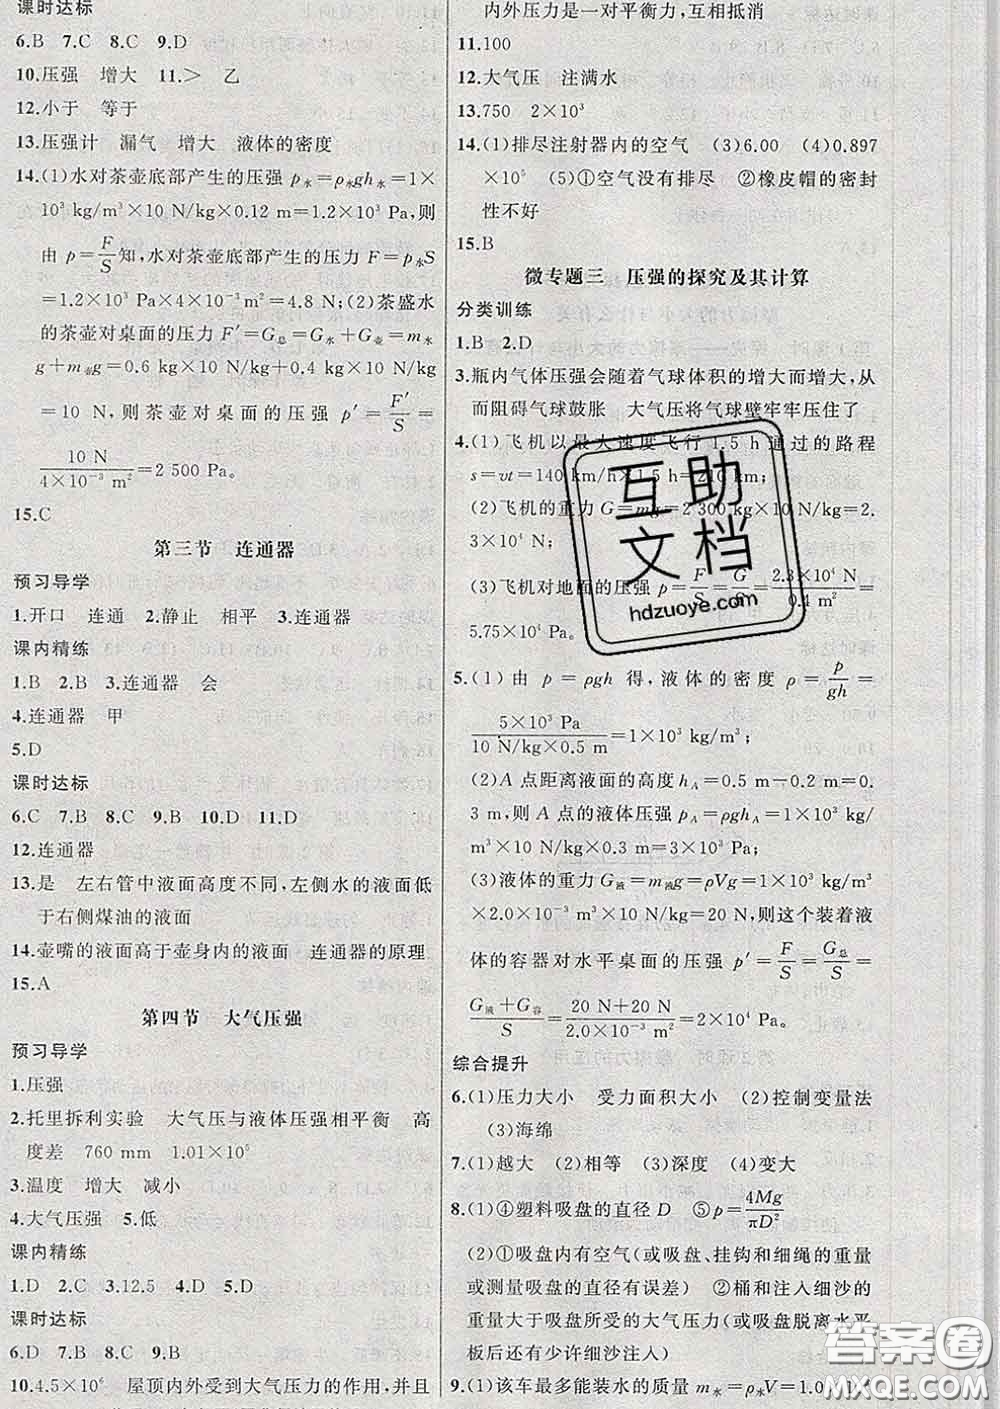 课时达标
6.B 7.C 8.C 9.D
10.压强 增大 11.> 乙
12.小于 等于
13.压强计 漏气 增大 液体的密度
14.(1)水对茶壶底部产生的压强 p水=ρ水gh水=1×
10³ kg/m³×10 N/kg×0.12 m=1.2×10³ Pa,则
由 p=F/S知,水对茶壶底部产生的压力 F=p水S
=1.2×10³ Pa×4×10⁻³ m²=4.8 N;(2)茶盛水
的茶壶对桌面的压力 F′=G总=G水+G壶=m水
g+m壶g=0.6 kg×10 N/kg+0.4 kg×10 N/kg
=10 N,则茶壶对桌面的压强 p′=F′/S=
10 N/4×10⁻³ m²=2 500 Pa。
15.C
第三节 连通器
预习导学
1.开口 连通 2.静止 相平 3.连通器
课内精练
1.B 2.B 3.连通器 会
4.连通器 甲
5.D
课时达标
6.C 7.B 8.C 9.B 10.D 11.D
12.连通器
13.是 左右管中液面高度不同,左侧水的液面低
于右侧煤油的液面
14.壶嘴的液面高于壶身内的液面 连通器的原理
15.A
第四节 大气压强
预习导学
1.压强
2.托里拆利实验 大气压与液体压强相平衡 高
度差 760 mm 1.01×10⁵
3.温度 增大 减小
4.大气压强 5.低
课内精练
1.D 2.C 3.12.5 4.D 5.D
课时达标
6.D 7.B 8.C 9.B
10.4.5×10⁶ 屋顶内外受到大气压力的作用,并且
内外压力是一对平衡力,互相抵消
11.100
12.大气压 注满水
13.750 2×10³
14.(1)排尽注射器内的空气 (3)6.00 (4)0.897
×10⁵ (5)①空气没有排尽 ②橡皮帽的密封
性不好
15.B
微专题三 压强的探究及其计算
分类训练
1.B 2.D
3.瓶内气体压强会随着气球体积的增大而增大,从
而阻碍气球鼓胀 大气压将气球壁牢牢压住了
4.(1)飞机以最大速度飞行 1.5 h 通过的路程
s=vt=140 km/h×1.5 h=210 km;
(2)飞机的重力 G=mg=2 300 kg×10 N/kg=2.
3×10⁴ N;
(3)飞机对地面的压强 p=F/S=G/S=2.3×10⁴ N/0.4 m²=
5.75×10⁴ Pa。
5.(1)由 p=ρgh 得,液体的密度 ρ=p/gh=
5×10³ Pa/10 N/kg×0.5 m=1×10³ kg/m³;
(2)A 点距离液面的高度 hA=0.5 m-0.2 m=0.
3 m,则 A 点的液体压强 pA=ρghA=1×10³ kg/
m³×10 N/kg×0.3 m=3×10³ Pa;
(3)液体的重力 G液=m液g=ρVg=1×10³ kg/m³
×2.0×10⁻³ m³×10 N/kg=20 N,则这个装着液
体的容器对水平桌面的压强 p′=F/S=G总/S=
G液+G容/S=20 N+20 N/2.0×10⁻³ m²=2×10⁴ Pa。
综合提升
6.(1)压力大小 受力面积大小 (2)控制变量法
(3)海绵
7.(1)越大 (2)相等 (3)深度 (4)变大
8.(1)④塑料吸盘的直径 D ⑤p=4Mg/πD²
(2)①吸盘内有空气(或吸盘、挂钩和细绳的重量
或测量吸盘的直径有误差) ②桶和注入细沙的
重量大于吸盘所受的大气压力(或吸盘脱离水平
板后还有少许细沙注入)
9.(1)该车最多能装水的质量 m水=ρ水V=1.0
互助
文档
hdzuoye.com
答案圈
MXQE.COM